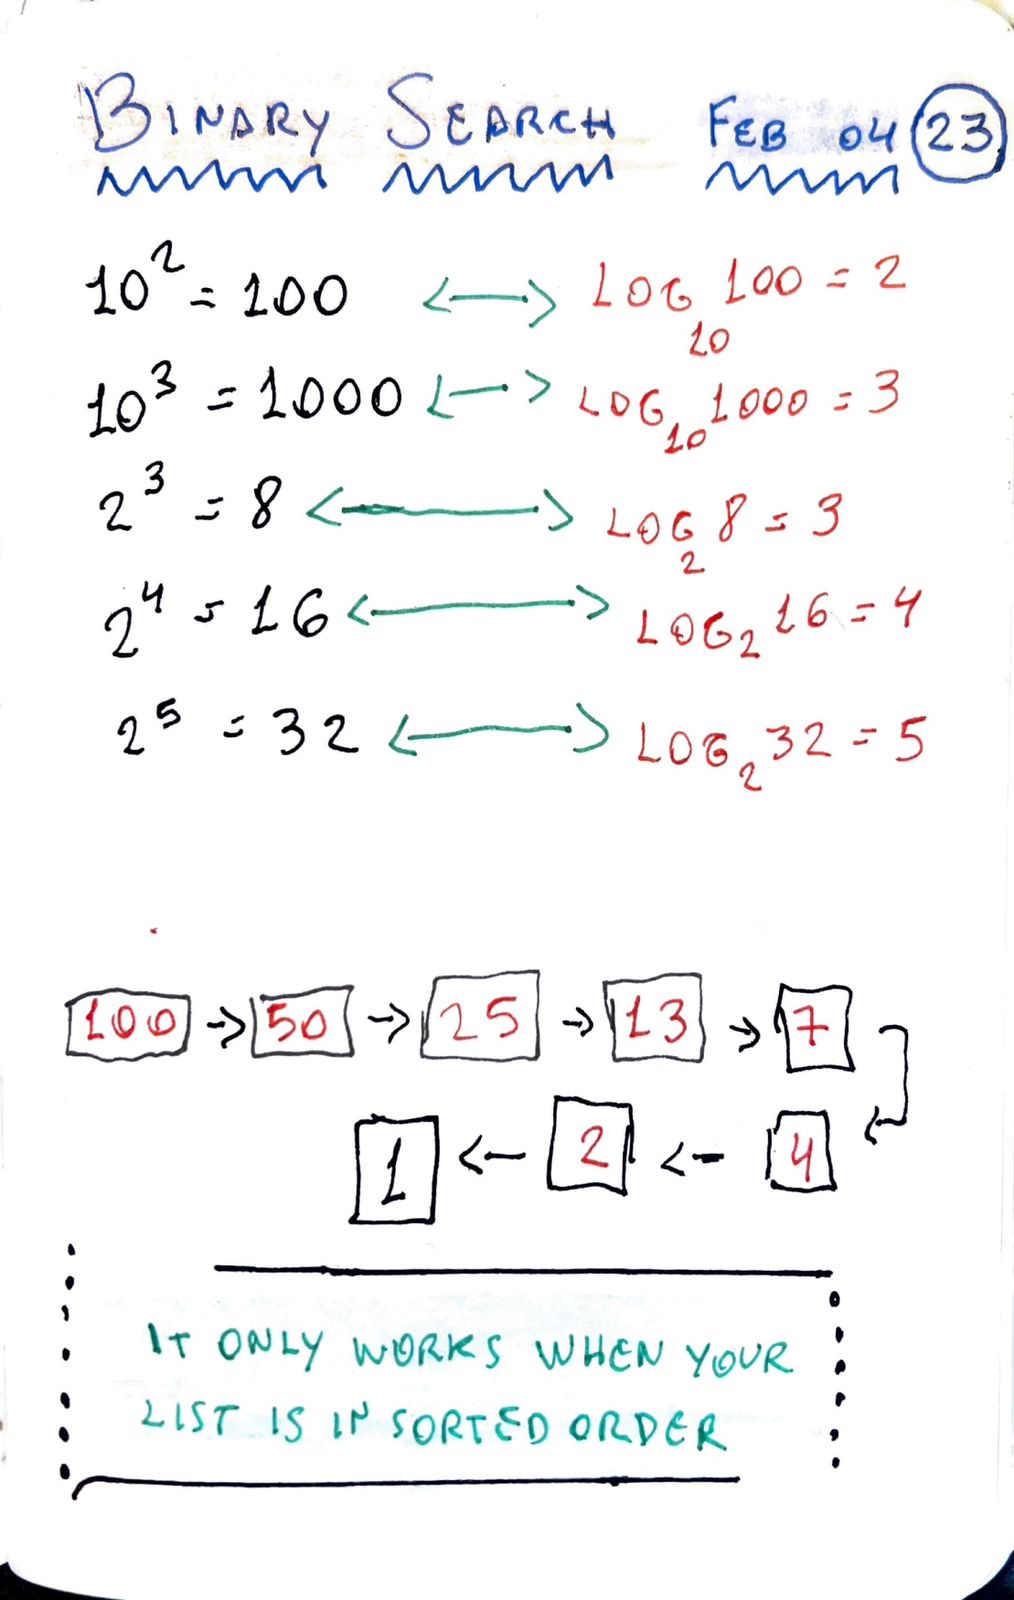 BINARY SEARCH FEB 04 23
10² = 100 <-> LOG₁₀ 100 = 2
10³ = 1000 <-> LOG₁₀ 1000 = 3
2³ = 8 <-> LOG₂ 8 = 3
2⁴ = 16 <-> LOG₂ 16 = 4
2⁵ = 32 <-> LOG₂ 32 = 5
100 -> 50 -> 25 -> 13 -> 7
1 <- 2 <- 4
IT ONLY WORKS WHEN YOUR
LIST IS IN SORTED ORDER